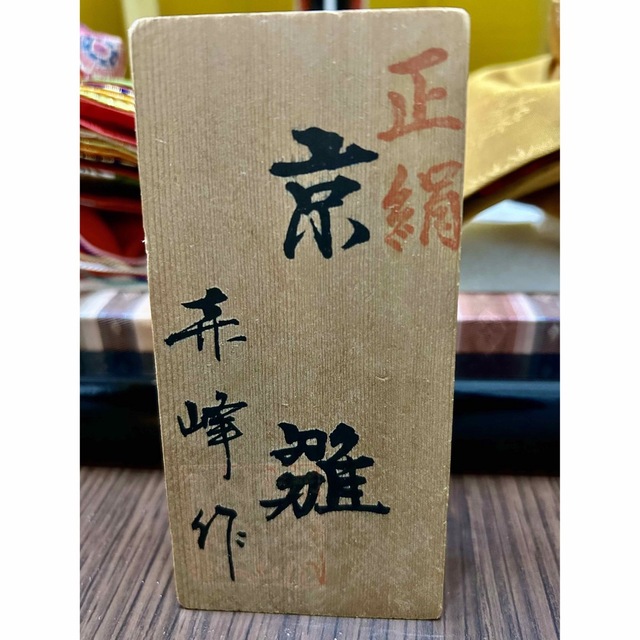 正絹
京雛
赤峰作